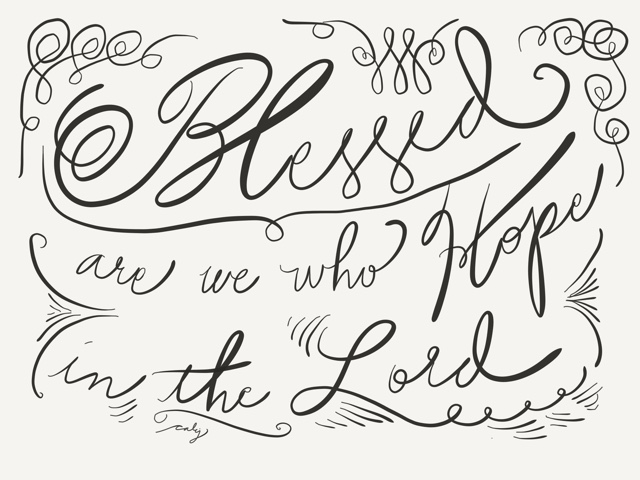 Blessed
are we who Hope
in the Lord